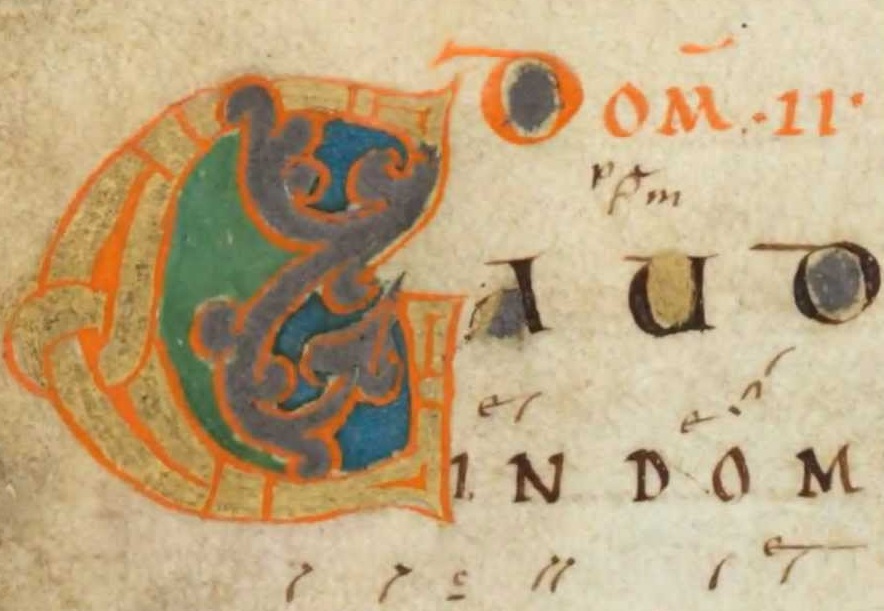 DOM̄ ·II·
GAUD
IN DOM